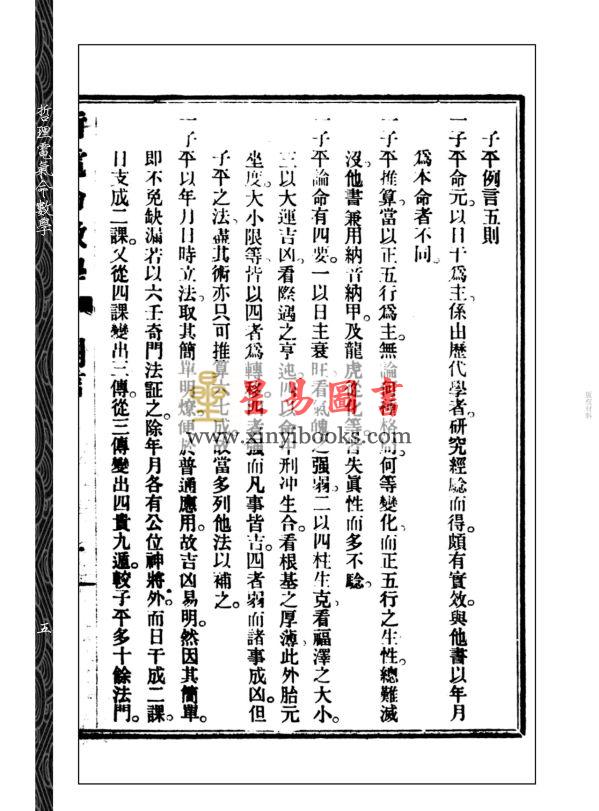 子平例言五則
一子平命元以日干爲主。係出歷代學者研究經驗而得。頗有實效。與他書以年月
爲本命者不同。
一子平推算。當以正五行爲主。無論何格何等變化。而正五行之生性。總難滅
沒。他書兼用納音納甲。及龍虎從化等。皆失眞性而多不驗。
一子平論命有四要。一以日主衰旺。看氣魄之强弱。二以四柱生克。看福澤之大小。
三以大運吉凶。看際遇之亨 四以命中刑冲生合。看根基之厚薄。此外胎元
坐度。大小限等。皆以四者爲轉移。四者强而凡事皆吉。四者弱而諸事成凶。但
子平之法。盡其術亦只可推算六七成。故當多列他法以補之。
一子平以年月日時立法。取其簡單明燎。便於普通應用。故吉凶易明。然因其簡單。
即不免缺漏。若以六壬奇門法証之。除年月各有公位神將外。而日干成二課。
日支成二課。又從四課變出三傳。從三傳變出四貴九遁。較子平多十餘法門。
哲理電氣命數學
五
星易圖書
www.xinyibooks.com
版權材料